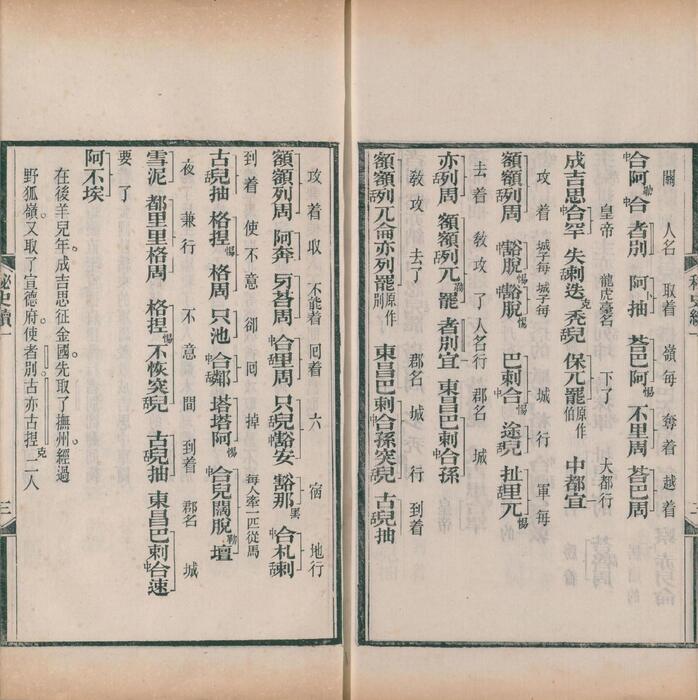 關 人名 取着 嶺每 奪着 越着
中合阿勒合 者別 阿卜抽 荅巴阿惕 不里周 荅巴周
皇帝 龍虎臺名 下了 大都行
成吉思中合罕 失剌迭克 禿舌兒 保兀罷原作伯 中都宜
攻着 城子每 城子每 城行 軍每
額額舌列周 豁脫惕豁脫惕 巴剌中合 途舌兒 扯里兀惕
去着 教攻了 人名行 郡名 城
亦舌列周 額額舌列兀勒罷 者別宜 東昌巴剌中合孫
教攻 去了 郡名 城行 到着
額額舌列兀侖亦列罷原作別 東昌巴剌中合孫突舌兒 古舌兒抽
攻着取 不能着 囘着 六 宿 地行
額額舌列周 阿奔 牙荅周 中合里周 只舌兒豁安 豁那黑 中合札舌剌
到着 使不意 卻囘掉 每人牽一匹從馬
古舌兒抽 格捏惕格周 只池 中合鄰 塔塔阿惕 中合兒闊脫勒壇
夜 兼行 不意 間 到着 郡名 城
雪泥 都里里格周 格捏惕 不恢突舌兒 古舌兒抽 東昌巴剌中合速
要了
阿不埃
在後羊兒年成吉思征金國先取了撫州經過
野狐嶺又取了宣德府使者別古亦古捏克二人
祕史續一
三